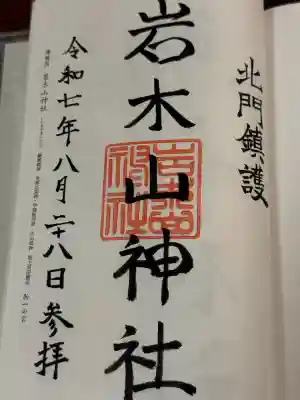 北門鎮護
岩木山神社
令和七年八月二十八日参拝